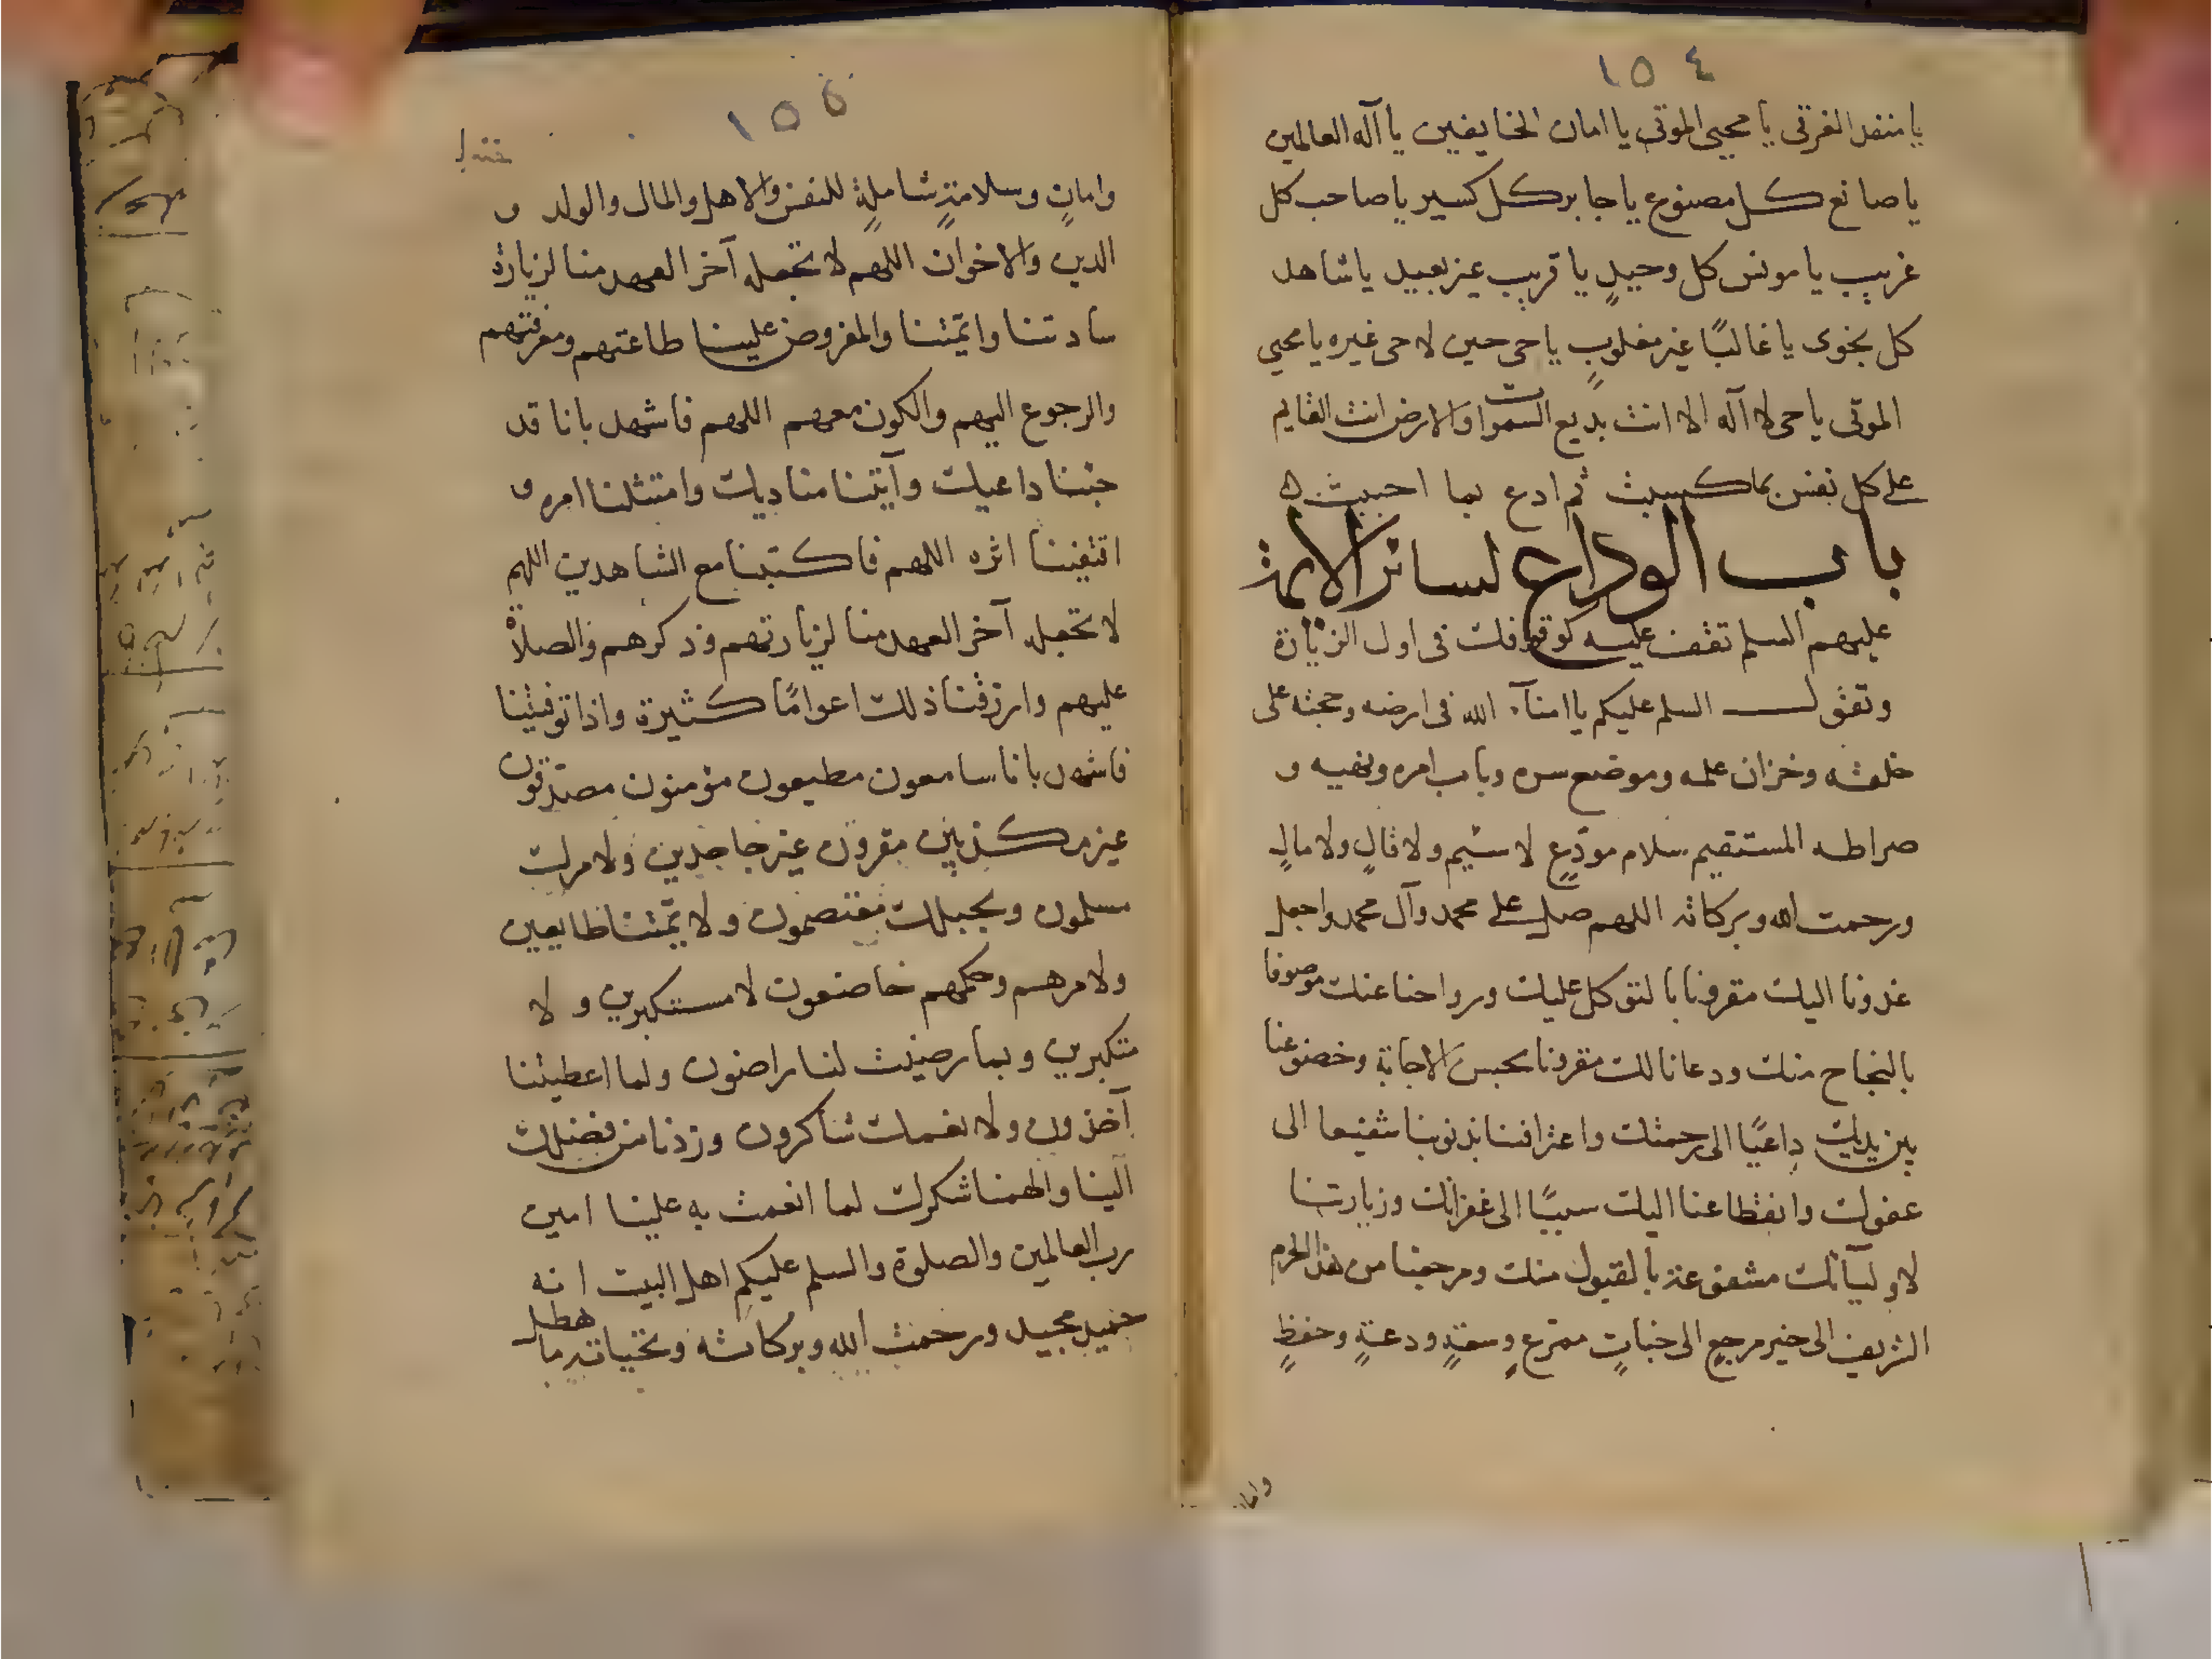 ١٥٤
يا منقد الغرقى يا محيى الموتى يا امان الخايفين يا آله العالمين
يا صانع كل مصنوع يا جابر كل كسير يا صاحب كل
غريب يا مونس كل وحيدٍ يا قريب غير بعيد يا شاهد
كل نجوى يا غالبًا غير مغلوبٍ يا حى حين لا حى غيره يا محيى
الموتى يا حى لا آله الا انت بديع السموات والارض انت القايم
على كل نفس بما كسبت ثم ادع بما احببت ٥
باب الوداع لسائر الائمة
عليهم السلم تقف عليه كوقوفك فى اول الزيارة
وتقول السلم عليكم يا امنآء الله فى ارضه وحجته على
خلقه وخزان علمه وموضع سره وباب امره ونهيه و
صراطه المستقيم سلام مودعٍ لا سئيم ولا قالٍ ولا مالٍ
ورحمت الله وبركاته اللهم صل على محمد وآل محمد واجعل
غدونا اليك مقرونا بالتوكل عليك ورواحنا عنك موصوفا
بالنجاح منك ودعانا لك مقرونا بحسن الاجابة وخضوعنا
بين يديك داعيًا الى رحمتك واعترافنا بذنوبنا شفيعا الى
عفوك وانقطاعنا اليك سببًا الى غفرانك وزيارتنا
لاوليآئك مشفوعة بالقبول منك ومرجعنا من هذا الحرم
الشريف الى خير مرجعٍ الى جنابٍ ممرعٍ وسعةٍ ودعةٍ وحفظٍ
وامان
١٥٥
وامانٍ وسلامةٍ شاملةٍ للنفس والاهل والمال والولد و
الدين والاخوان اللهم لا تجعله آخر العهد منا لزيارة
سادتنا وائمتنا والمفروض علينا طاعتهم ومعرفتهم
والرجوع اليهم والكون معهم اللهم فاشهد بانا قد
جئنا داعيك وآتينا مناديك وامتثلنا امره و
اقتفينا اثره اللهم فاكتبنا مع الشاهدين اللهم
لا تجعله آخر العهد منا لزيارتهم وذكرهم والصلاة
عليهم وارزقنا ذلك اعوامًا كثيرة واذا توفيتنا
فاشهد بانا سامعون مطيعون مؤمنون مصدقون
غير مكذبين مقرون غير جاحدين ولامرك
مسلمون وبحبلك معتصمون ولائمتنا طايعين
ولامرهم وحكمهم خاضعون لا مستكبرين ولا
متكبرين وبما رضيت لنا راضون ولما اعطيتنا
آخذون ولانعمك شاكرون وزدنا من فضلك
الينا والهمنا شكرك لما انعمت به علينا امين
رب العالمين والصلوة والسلم عليكم اهل البيت انه
حميد مجيد ورحمت الله وبركاته وتحياته ما هطل